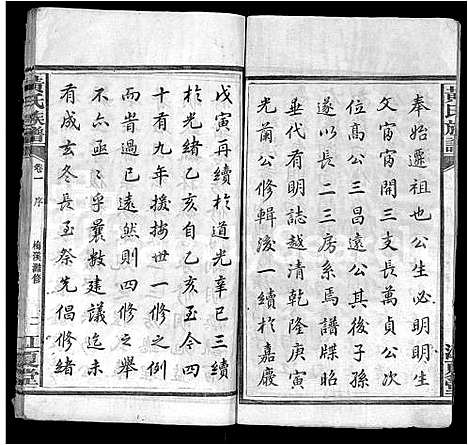 黃氏族譜
奉始遷祖也公生必明明生
文甯甯開三支長萬貞公次
位高公三昌遠公其後子孫
遂以長二三房系焉譜牒昭
垂代有明誌越清乾隆庚寅
光蘭公修輯後一續於嘉慶
戊寅再續於道光辛巳三續
於光緒乙亥自乙亥至今四
十有九年援按卅一年一修
而崇過已遠然則四修之舉
不亦亟乎曩數建議迄未
有成玄冬長至祭先倡修
黃氏族譜
卷一
序
梅溪灘修
二
江夏堂